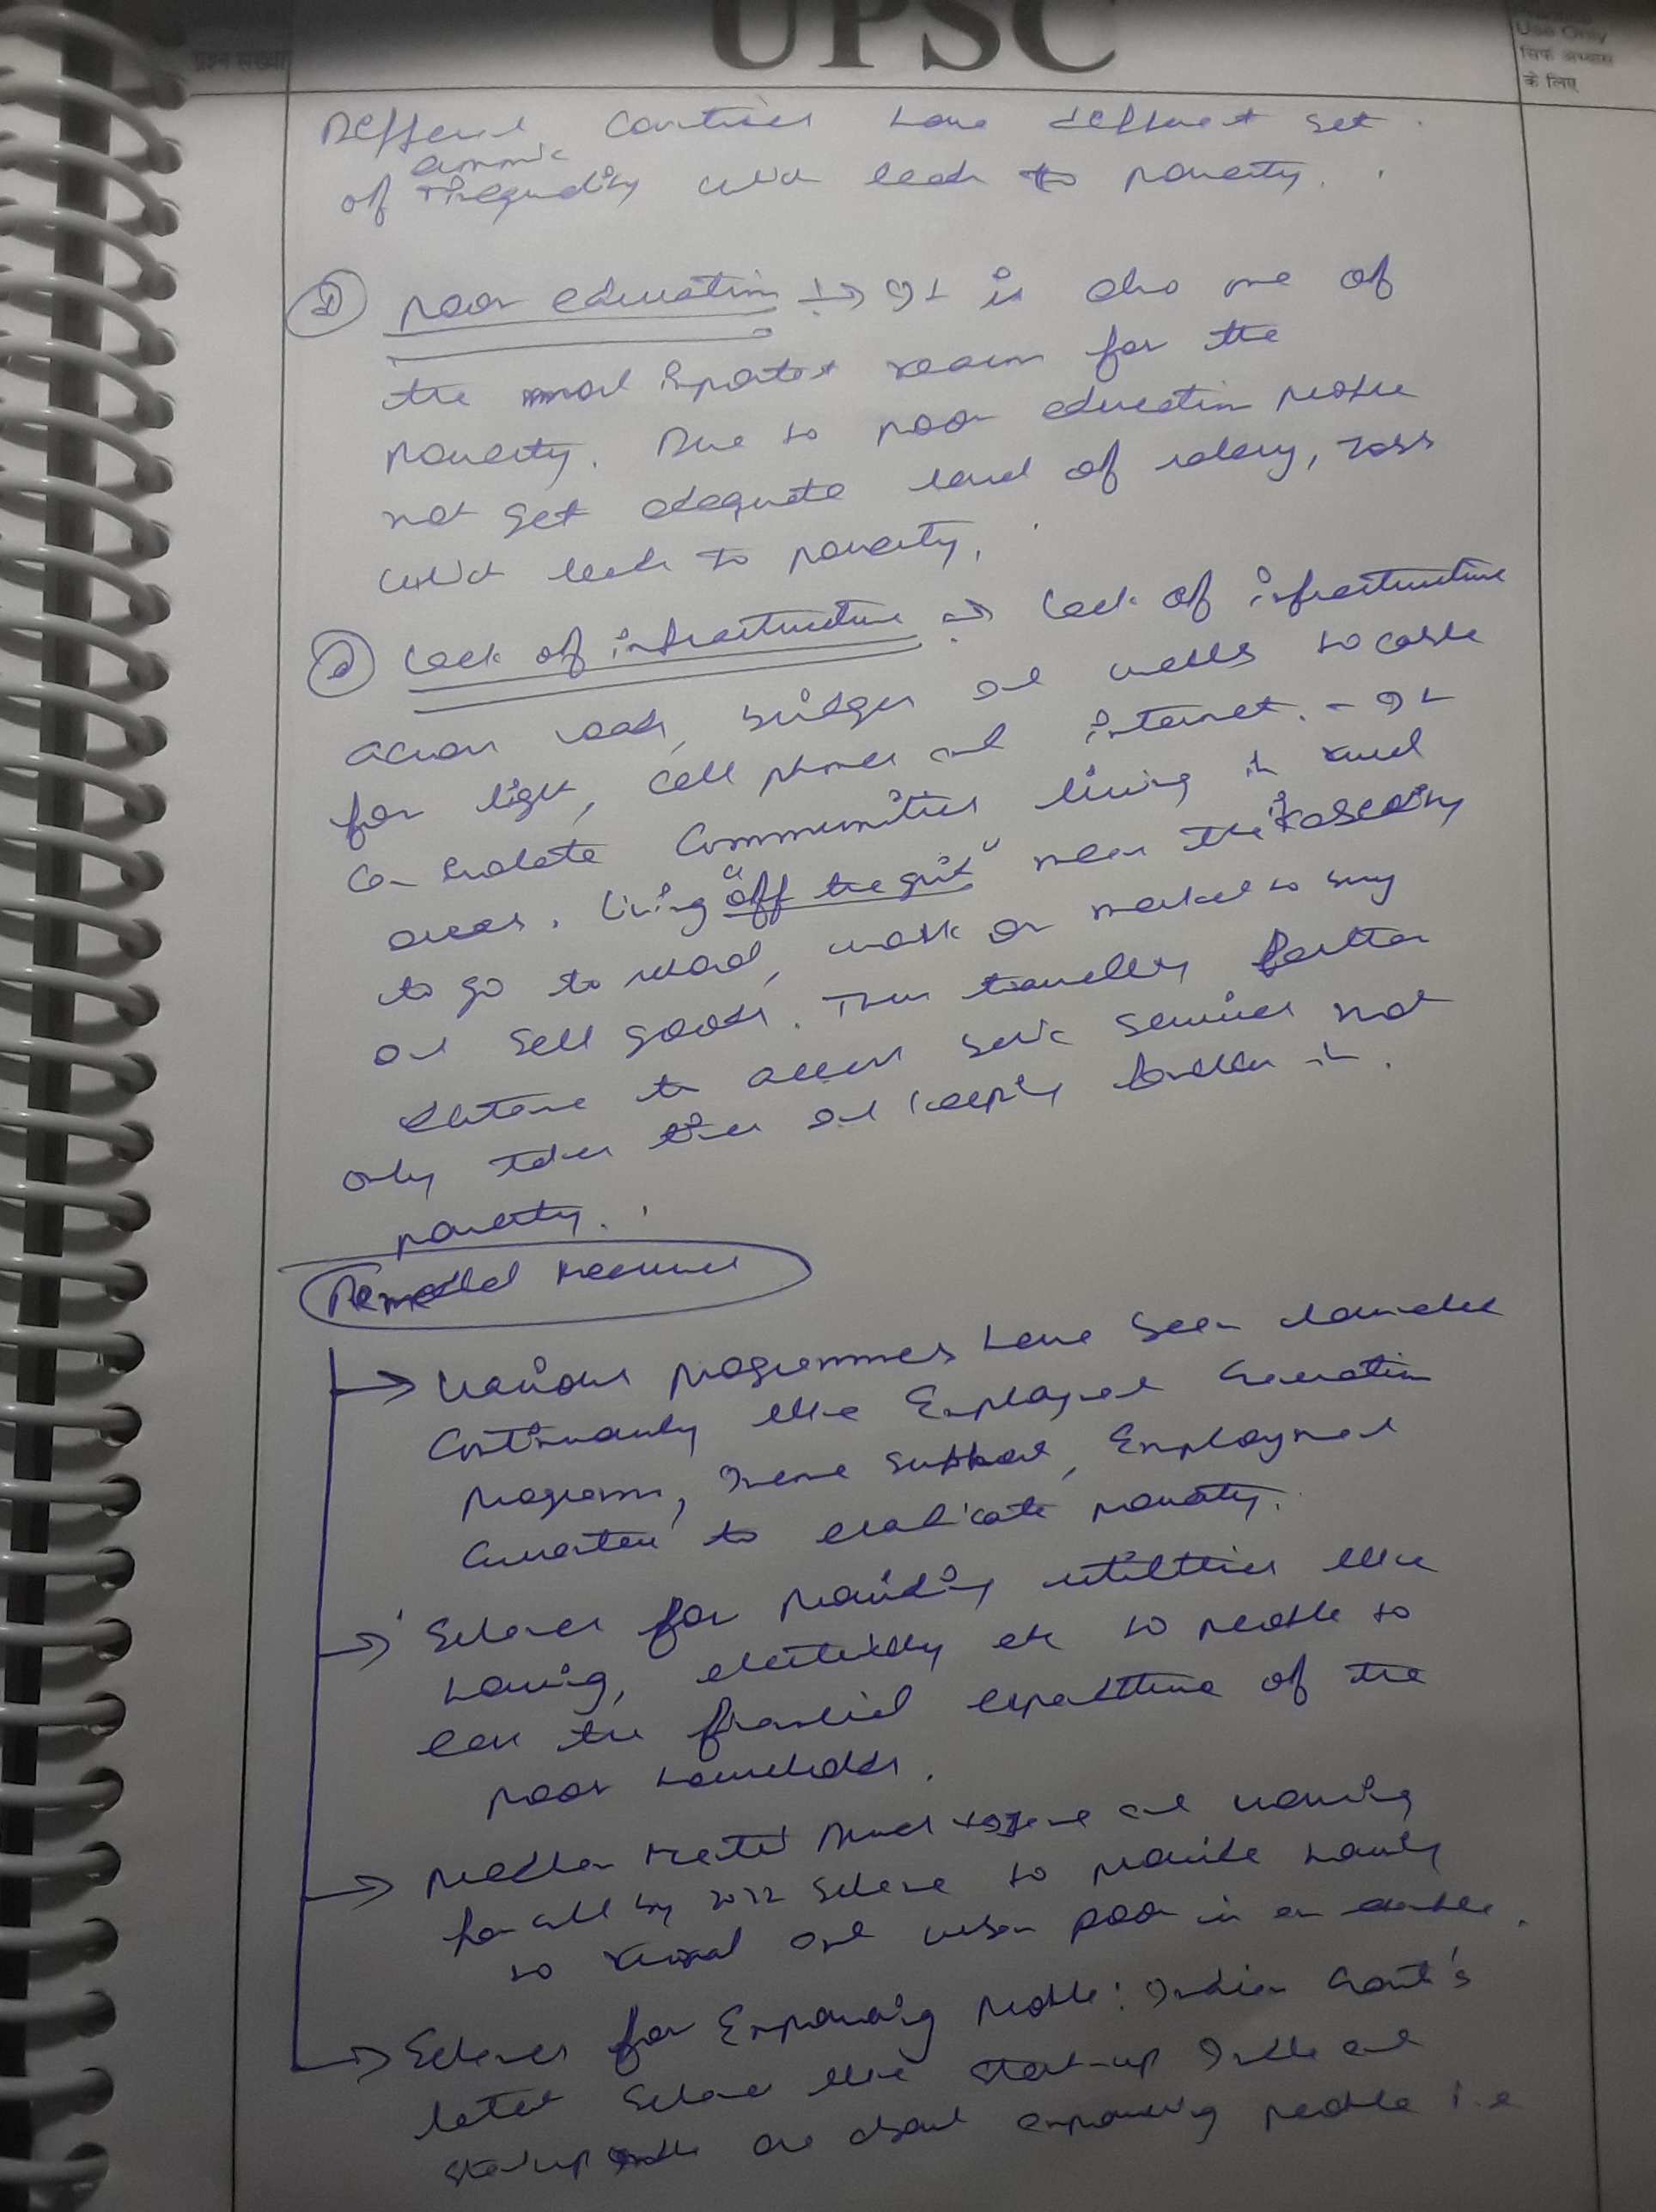 UPSC
प्रश्न संख्या
Use Only
सिर्फ अभ्यास
के लिए
Different countries have different set
of inequality which leads to poverty.
poor education :→ It is also one of
the most important reason for the
poverty. Due to poor education people
not get adequate level of salary, Jobs
which leads to poverty.
Lack of infrastructure :→ Lack of infrastructure
across roads, bridges and wells to cable
for light, cell phones and internet. - It
can isolate communities living in rural
areas. Living "off the grid" mean the
to go to school, work or market to buy
and sell goods. Then travelling further
distance to access basic services not
only takes time and keeping families in
poverty.
Remedial Measures
→ Various programmes have been
Continuously like Employment Generation
Programs, Income support, Employment
Guarantee to eradicate poverty.
→ Schemes for providing utilities like
housing, electricity etc to people to
the financial expenditure of the
poor households.
→ Pradhan Mantri and housing
for all by 2022 scheme to provide housing
to rural and urban poor in an
→ Schemes for Empowering people: Indian Govt's
latest schemes like Start-up India and
Standup India are about empowering people i.e